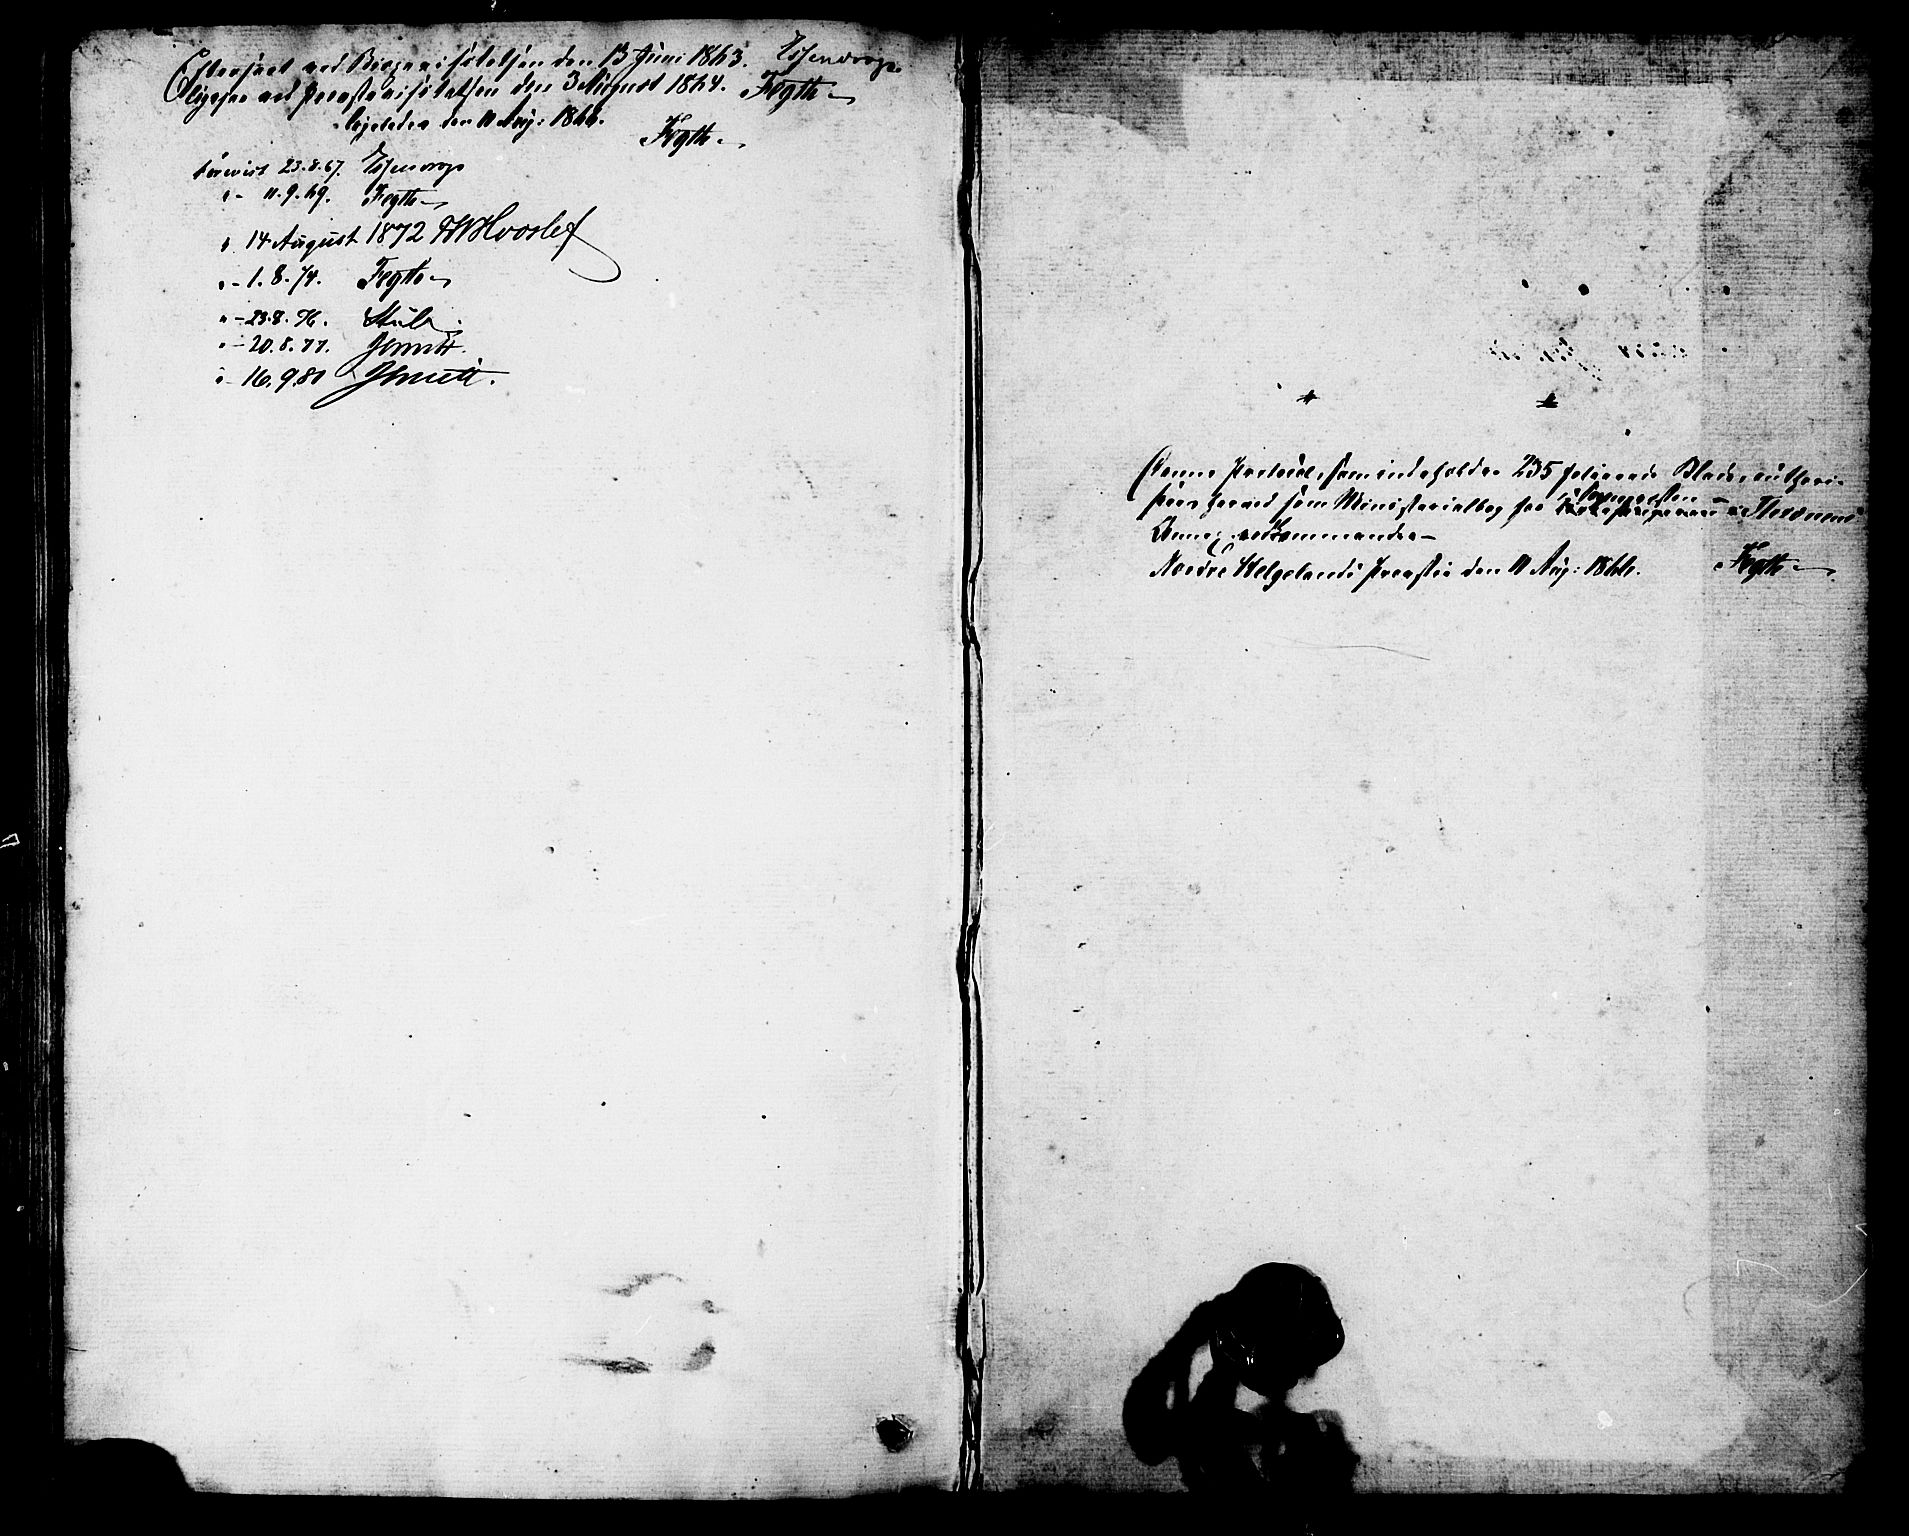 Efterseet ved Bispevisitatsen den 13 Juni 1863. Essendrop.
Ligesaa ved Provstevisitatsen den 3 August 1864. Fegth
ligeledes den 11 Aug: 1866. Fegth
forevist 23.8.67. Essendrop
" - 11.9.69. Fegth
" 14 August 1872 Hvoslef
" - 1.8.74. Fegth
" - 23.8.76.
" - 20.8.77.
" - 16.9.80
Denne Protocol, som indeholder 235 folierede Blade, authori-
seres herved som Ministerialbog for
Annex vedkommende -
Nordre Helgelands Provsti den 11 Aug: 1866. Fegth